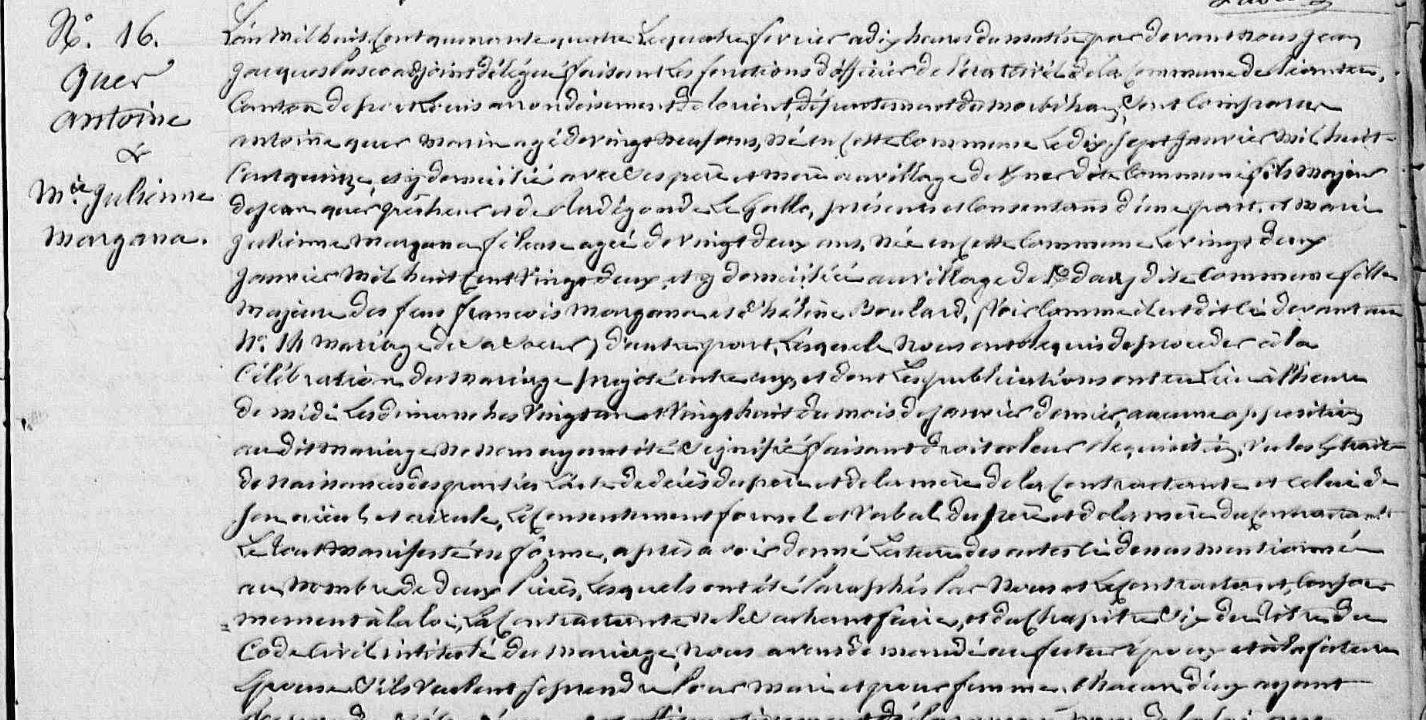 N°. 16.
quer
antoine
&
Mie julienne
Morgana.
L'an mil huit Cent quarante quatre Le quatre fevrier a dix heures du matin par devant nous jean
jacques adjoint délégué faisant Les fonctions d'officier de l'état civil de la Commune de Riantec,
Canton de port Louis arrondissement de Lorient, département du morbihan, Sont Comparus
antoine quer marin agé de vingt neuf ans, né en Cette Commune Le dix sept janvier mil huit
Cent quinze, et y domicilié avec Ses père et mère au village de dite Commune fils majeur
de jean quer pêcheur et de Radégonde Le Gallo, présents et Consentans d'une part, et marie
julienne Morgana fileuse agée de vingt deux ans, née en Cette Commune Le vingt deux
janvier mil huit Cent vingt deux, et y domiciliée au village de dite Commune fille
majeure des feus françois Morgana et d'hélène Boulard, (voir Comme il est dit ci devant au
N°. 14 mariage de sa soeur) d'autre part, Lesquels Nous ont Requis de proceder à la
Célébration du Mariage projeté entre eux, et dont Les publications ont eu Lieu à l'heure
de midi Les dimanches vingt un et vingt huit du mois de janvier dernier, aucune opposition
au dit Mariage Ne Nous ayant été Signifié faisant droit a leur Requisition, vu les Extraits
de Naissances des parties L'acte de décès du père et de la mère de la Contractante et Celui de
Son aieul et aieule, Le Consentement formel et verbal du père et de la mère du Contractant
Le tout Manifesté en forme, après avoir donné Lecture des actes Ci dessus mentionnés
au Nombre de deux pièces, Lesquels ont été paraphés par Nous et Le Contractant, Confor
mement à la loi, La Contractante ne le Sachant faire, et du Chapitre Six du titre du
Code Civil intitulé du Mariage, Nous avons demandé au futur époux et à la future
épouse S'ils veulent se prendre pour mari et pour femme, Chacun d'eux ayant